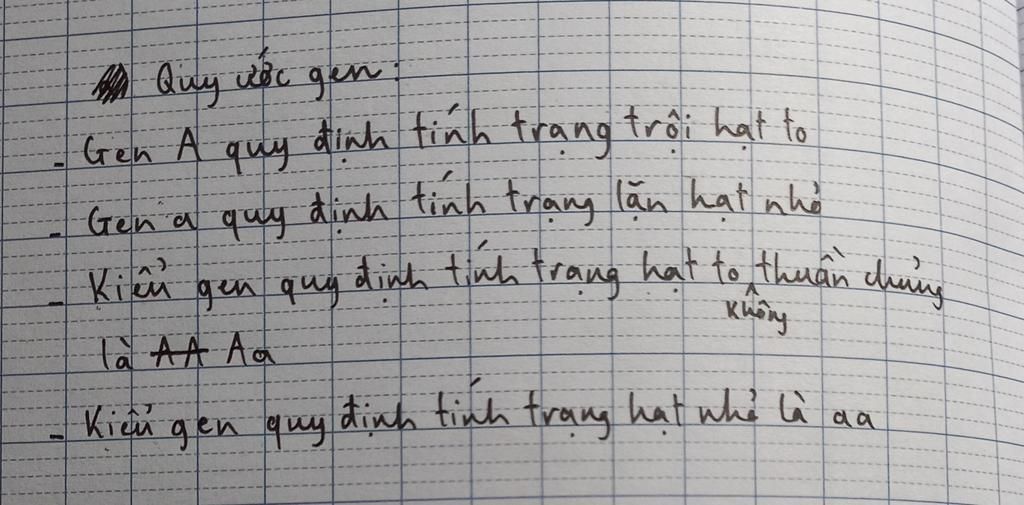 Quy ước gen:
- Gen A quy định tính trạng trội hạt to
- Gen a quy định tính trạng lặn hạt nhỏ
- Kiểu gen quy định tính trạng hạt to không thuần chủng
là AA Aa
- Kiểu gen quy định tính trạng hạt nhỏ là aa